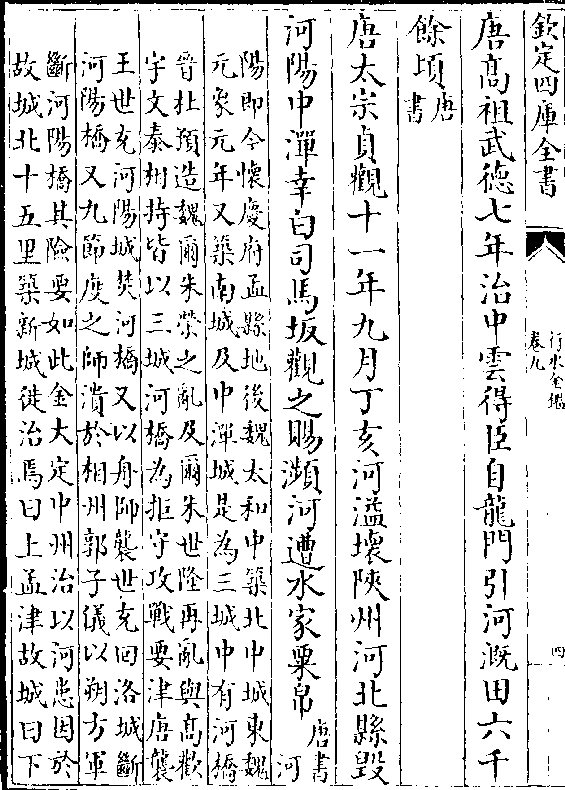 欽定四庫全書
行水金鑑
卷九
四
唐高祖武德七年治中雲得臣自龍門引河溉田六千
餘頃唐書
唐太宗貞觀十一年九月丁亥河溢壞陝州河北縣毀
河陽中潬幸白司馬坂觀之賜瀕河遭水家粟帛唐書河
陽即今懷慶府孟縣地後魏太和中築北中城東魏
元象元年又築南城及中潬城是為三城中有河橋
晉杜預造魏爾朱榮之亂及爾朱世隆再亂與高歡
宇文泰相持皆以三城河橋為拒守攻戰要津唐襲
王世充河陽城焚河橋又以舟師襲世充回洛城斷
河陽橋又九節度之師潰於相州郭子儀以朔方軍
斷河陽橋其險要如此金大定中州治以河患因於
故城北十五里築新城徙治焉曰上孟津故城曰下